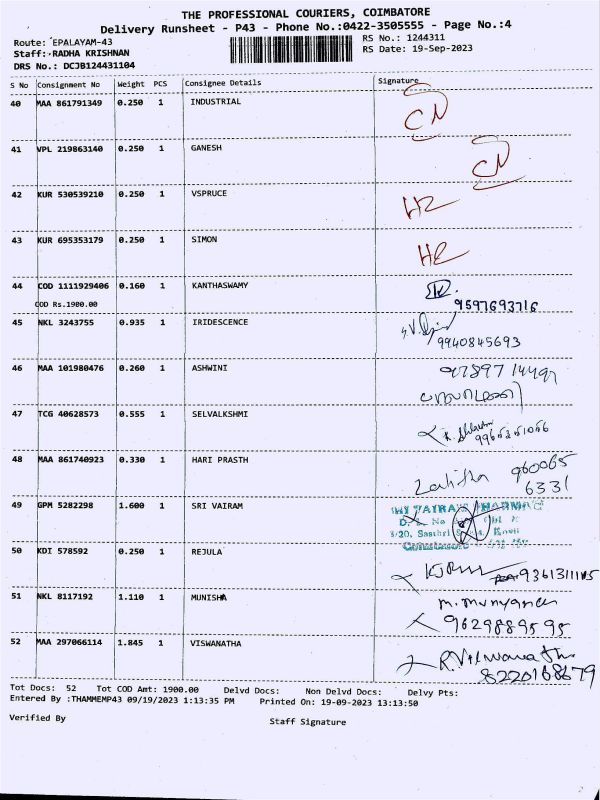 THE PROFESSIONAL COURIERS, COIMBATORE
Delivery Runsheet - P43 - Phone No.:0422-3505555 - Page No.:4
Route: EPALAYAM-43 RS No.: 1244311
Staff: RADHA KRISHNAN RS Date: 19-Sep-2023
DRS No.: DCJB124431104
S No Consignment No Weight PCS Consignee Details Signature
40 MAA 861791349 0.250 1 INDUSTRIAL CN
41 VPL 219863140 0.250 1 GANESH CN
42 KUR 530539210 0.250 1 VSPRUCE
43 KUR 695353179 0.250 1 SIMON
44 COD 1111929406 0.160 1 KANTHASWAMY
COD Rs.1900.00 9597693716
45 NKL 3243755 0.935 1 IRIDESCENCE
9940845693
46 MAA 101980476 0.260 1 ASHWINI
47 TCG 40628573 0.555 1 SELVALKSHMI
48 MAA 861740923 0.330 1 HARI PRASTH Lalitha 960065
6331
49 GPM 5282298 1.600 1 SRI VAIRAM
50 KDI 578592 0.250 1 REJULA
51 NKL 8117192 1.110 1 MUNISHA
9629889595
52 MAA 297066114 1.845 1 VISWANATHA R.Viswanath
8220168679
Tot Docs: 52 Tot COD Amt: 1900.00 Delvd Docs: Non Delvd Docs: Delvy Pts:
Entered By :THAMMEMP43 09/19/2023 1:13:35 PM Printed On: 19-09-2023 13:13:50
Verified By Staff Signature